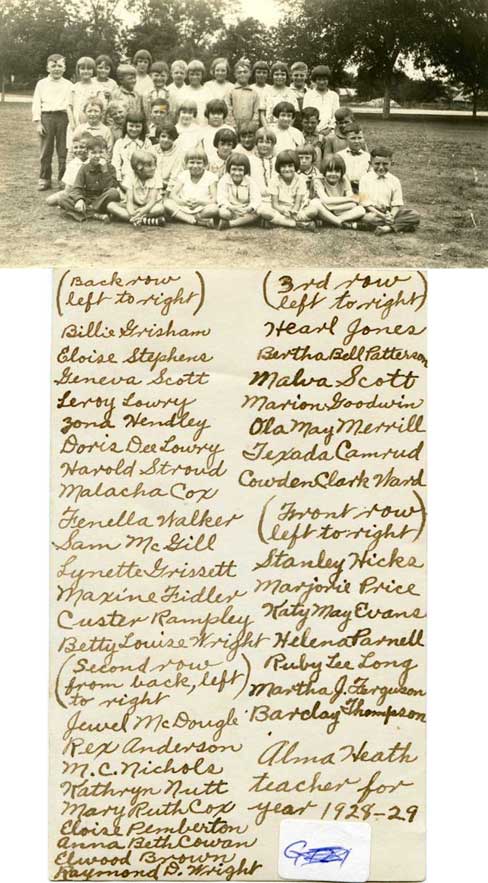 (Back row
left to right)
Billie Grisham
Eloise Stephens
Geneva Scott
Leroy Lowry
Zona Hendley
Doris Dee Lowry
Harold Stroud
Malacha Cox
Fenella Walker
Sam McGill
Lynette Grissett
Maxine Fidler
Custer Rampley
Betty Louise Wright
(Second row
from back, left
to right)
Jewel McDougle
Rex Anderson
M.C. Nichols
Kathryn Nutt
Mary Ruth Cox
Eloise Pemberton
Anna Beth Cowan
Elwood Brown
Raymond D. Wright
(3rd row
left to right)
Hearl Jones
Bertha Bell Patterson
Malva Scott
Marion Goodwin
Ola May Merrill
Texada Camrud
Cowden Clark Ward
(Front row
left to right)
Stanley Hicks
Marjorie Price
Katy May Evans
Helena Parnell
Ruby Lee Long
Martha J. Ferguson
Barclay Thompson
Alma Heath
teacher for
year 1928-29